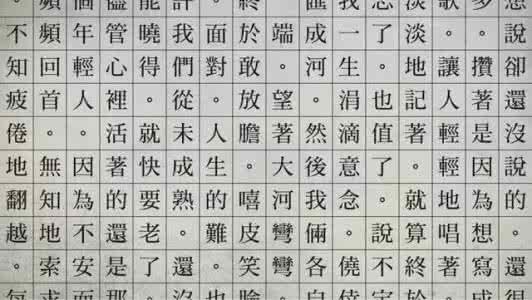 想說卻還沒說的。還很
多。攢著是因為想寫成
歌。讓人輕輕地唱著。
淡淡地記著。就算終於
忘了。也值了。說不定
我一生涓滴意念。僥倖
匯成河。然後我倆各自
一端。望著大河彎彎。
終於敢放膽。嘻皮笑臉
。面對。人生的難。也
許我們從未成熟。還沒
能曉得。就快要老了。
儘管心裡活著的還是那
個年輕人。因為不安而
頻頻回首。無知地索求
。不知疲倦地翻越。每